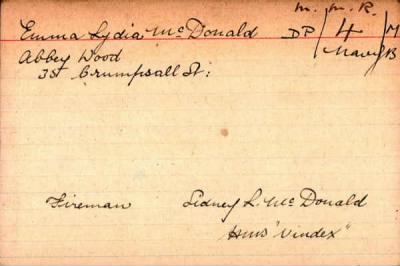 M. M. R.
Emma Lydia McDonald DP/4/M
Abbey Wood Navy/B
35 Crumpsall St:
Fireman Sidney L. McDonald
HMS "Vindex"